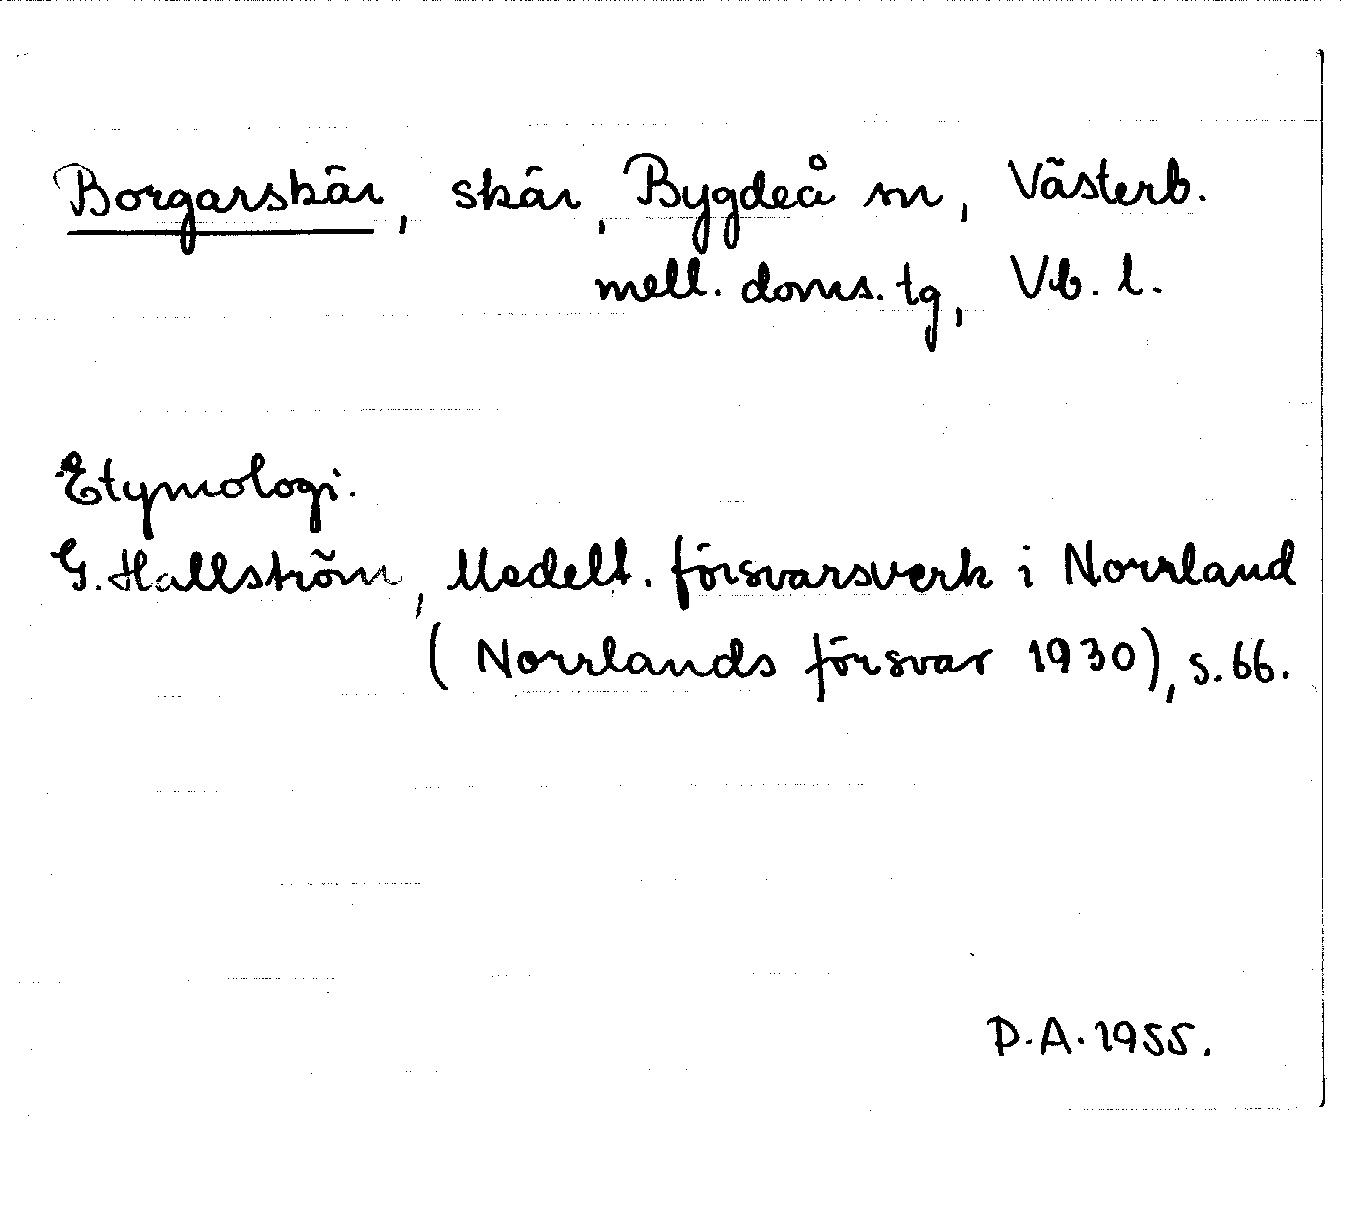 Borgarskär, skär, Bygdeå sn, Västerb.
mell. doms. tg, Vb. l.
Etymologi.
G. Hallström, Medelt. försvarsverk i Norrland
(Norrlands försvar 1930), s. 66.
P.A. 1955.